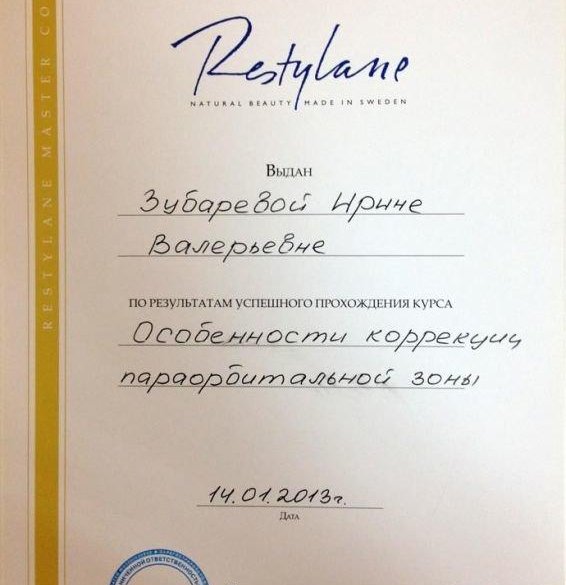 RESTYLANE MASTER CO
Restylane
NATURAL BEAUTY MADE IN SWEDEN
Выдан
Зубаревой Ирине
Валерьевне
по результатам успешного прохождения курса
Особенности коррекции
параорбитальной зоны
14.01.2013г.
Дата